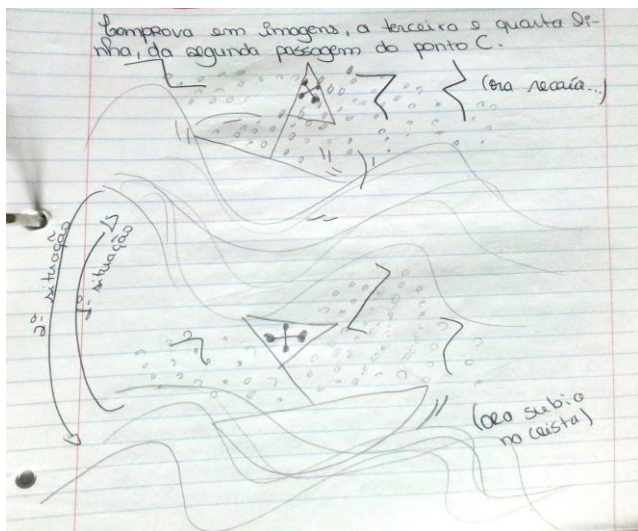 Comprova em imagens, a terceira e quarta li-
nha, da segunda passagem do ponto C.
(ora recaía...)
2ª situação
1ª situação
(ora subia
na crista)